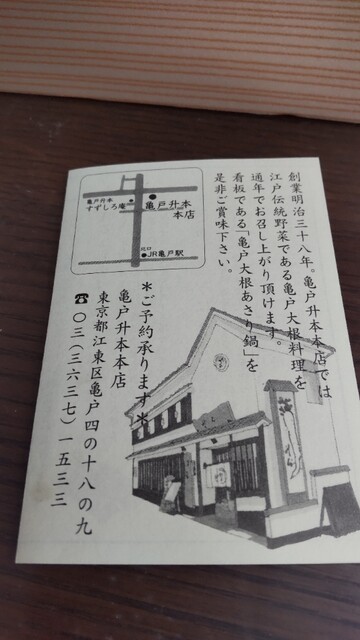 創業明治三十八年。亀戸升本本店では
江戸伝統野菜である亀戸大根料理を
通年でお召し上がり頂けます。
看板である「亀戸大根あさり鍋」を
是非ご賞味下さい。
亀戸升本
すずしろ庵
亀戸升本
本店
北口
JR亀戸駅
*ご予約承ります*
亀戸升本本店
東京都江東区亀戸四の十八の九
☎〇三(三六三七)一五三三